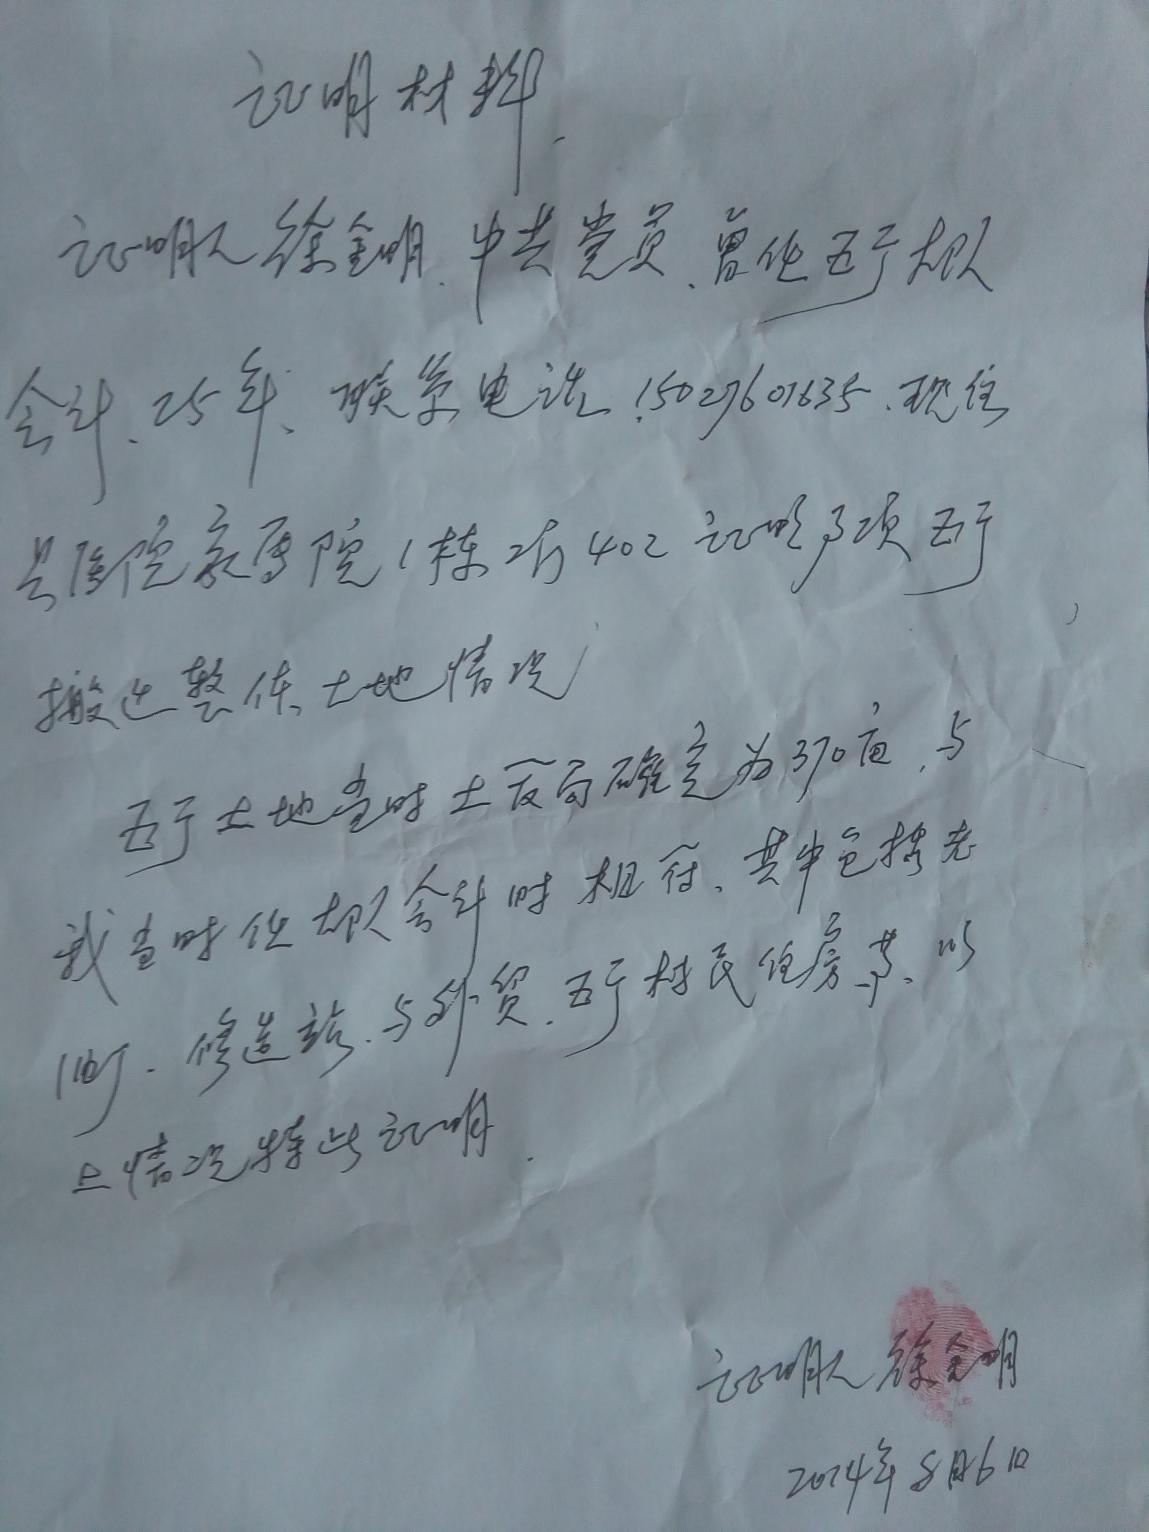 证明材料.
证明人徐金明.中共党员、曾任五丁大队
会计、25年、联系电话15027601635.现住
县医院家属院1栋2门402证明事项五丁
搬迁整体土地情况
五丁土地当时土管局确定为370亩,与
我当时任大队会计时相符、其中包括老
118厂.修造站.与外贸.五丁村民住房等、以
上情况特此证明.
证明人徐金明
2014年8月6日